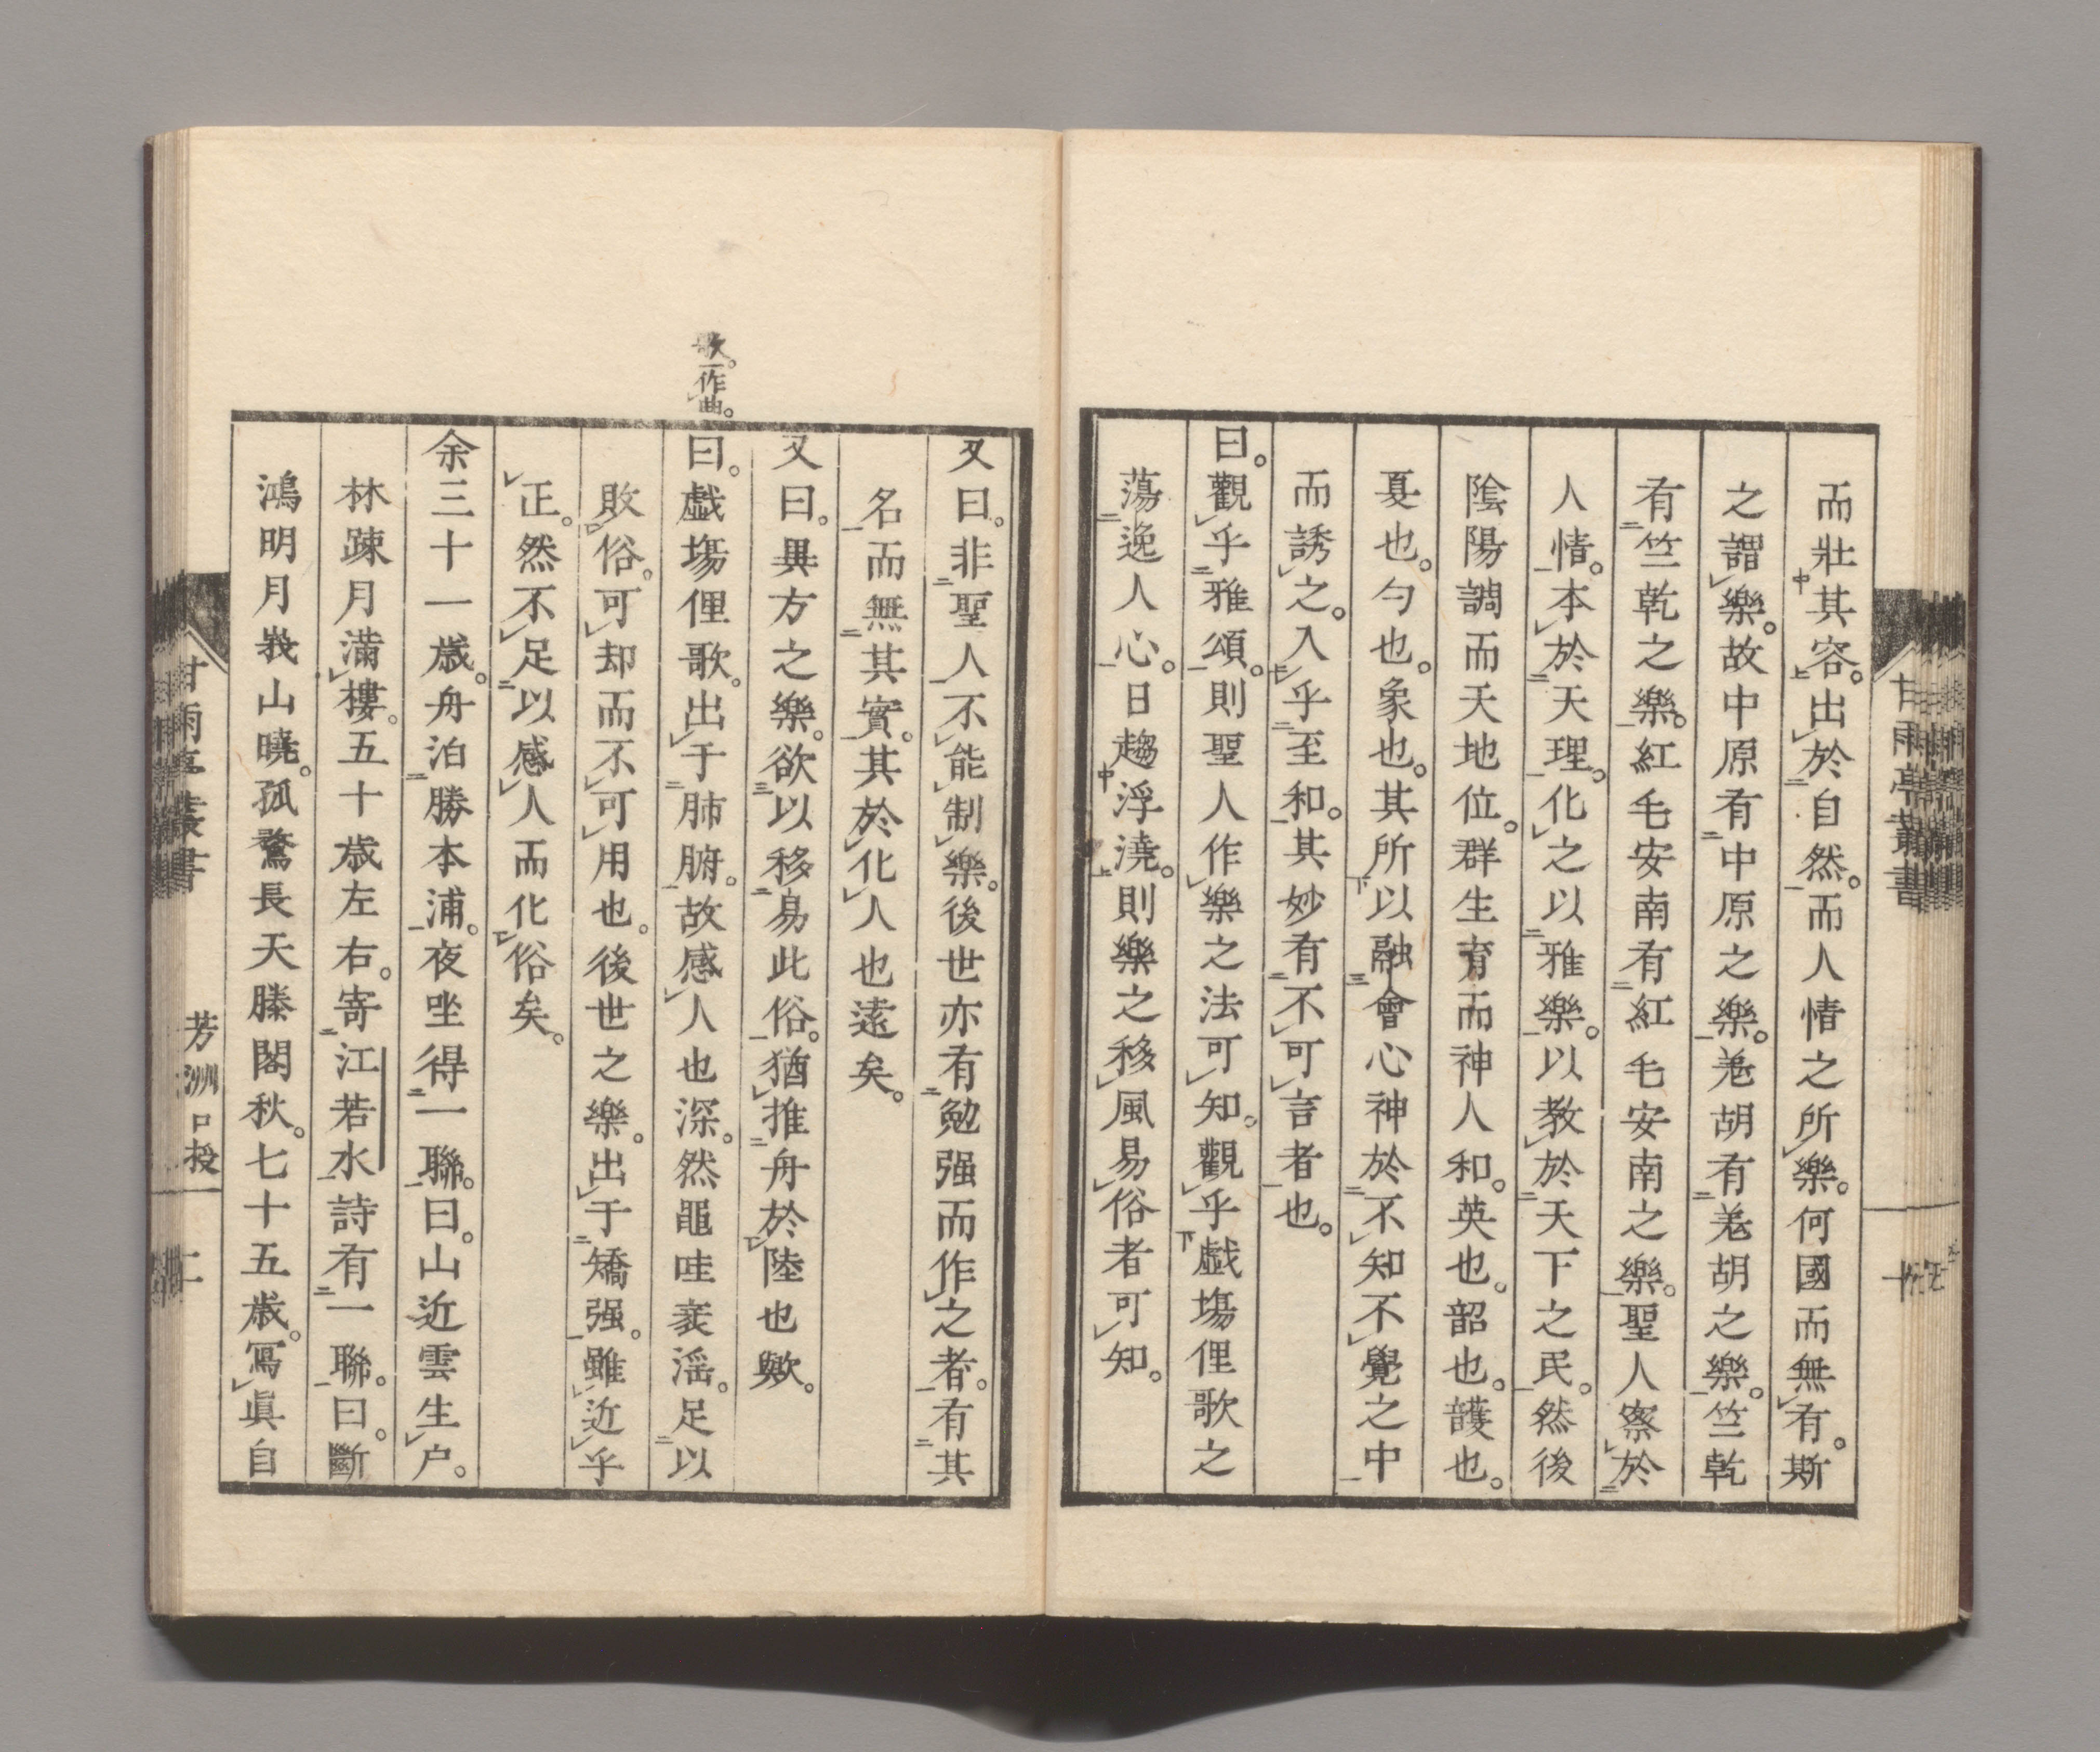 而壯其容。出於自然。而人情之所樂。何國而無有。斯
之謂樂。故中原有中原之樂。羌胡有羌胡之樂。竺乾
有竺乾之樂。紅毛安南有紅毛安南之樂。聖人察於
人情。本於天理。化之以雅樂。以教於天下之民。然後
陰陽調而天地位。群生育而神人和。英也。韶也。護也。
夏也。勺也。象也。其所以融會心神於不知不覺之中
而誘之。入乎至和。其妙有不可言者也。
曰。觀乎雅頌。則聖人作樂之法可知。觀乎戯塲俚歌之
蕩逸人心。日趨浮澆。則樂之移風易俗者可知。
又曰。非聖人不能制樂。後世亦有勉强而作之者。有其
名而無其實。其於化人也遠矣。
又曰。異方之樂。欲以移易此俗。猶推舟於陸也歟。
歌。一作曲。
曰。戯塲俚歌。出于肺腑。故感人也深。然黽哇衺滛。足以
敗俗。可却而不可用也。後世之樂。出于矯强。雖近乎
正。然不足以感人而化俗矣。
余三十一歳。舟泊勝本浦。夜坐得一聯。曰。山近雲生户。
林踈月滿樓。五十歳左右。寄江若水詩有一聯。曰。斷
鴻明月峩山曉。孤鶩長天滕閣秋。七十五歳。寫眞自
甘雨亭叢書
芳洲口授
甘雨亭叢書